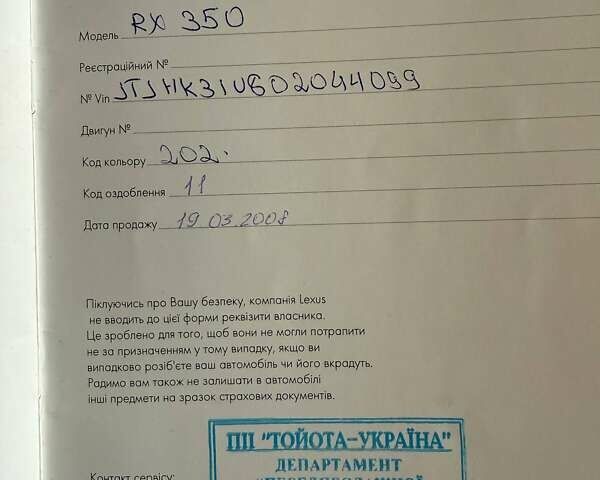 Модель RX 350
Реєстраційний №
№ Vin JTJHK31U602044099
Двигун №
Код кольору 202.
Код оздоблення 11
Дата продажу 19.03.2008
Піклуючись про Вашу безпеку, компанія Lexus
не вводить до цієї форми реквізити власника.
Це зроблено для того, щоб вони не могли потрапити
не за призначенням у тому випадку, якщо ви
випадково розіб'єте ваш автомобіль чи його вкрадуть.
Радимо вам також не залишати в автомобілі
інші предмети на зразок страхових документів.
ПІІ "ТОЙОТА-УКРАЇНА"
ДЕПАРТАМЕНТ
Контакт сервісу: